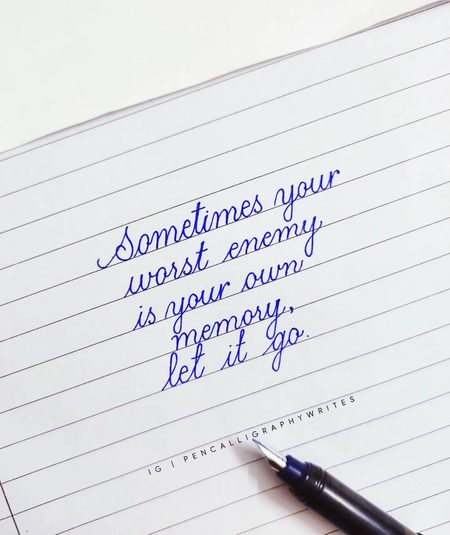 Sometimes your
worst enemy
is your own
memory,
let it go.
IG | PENCALLIGRAPHYWRITES